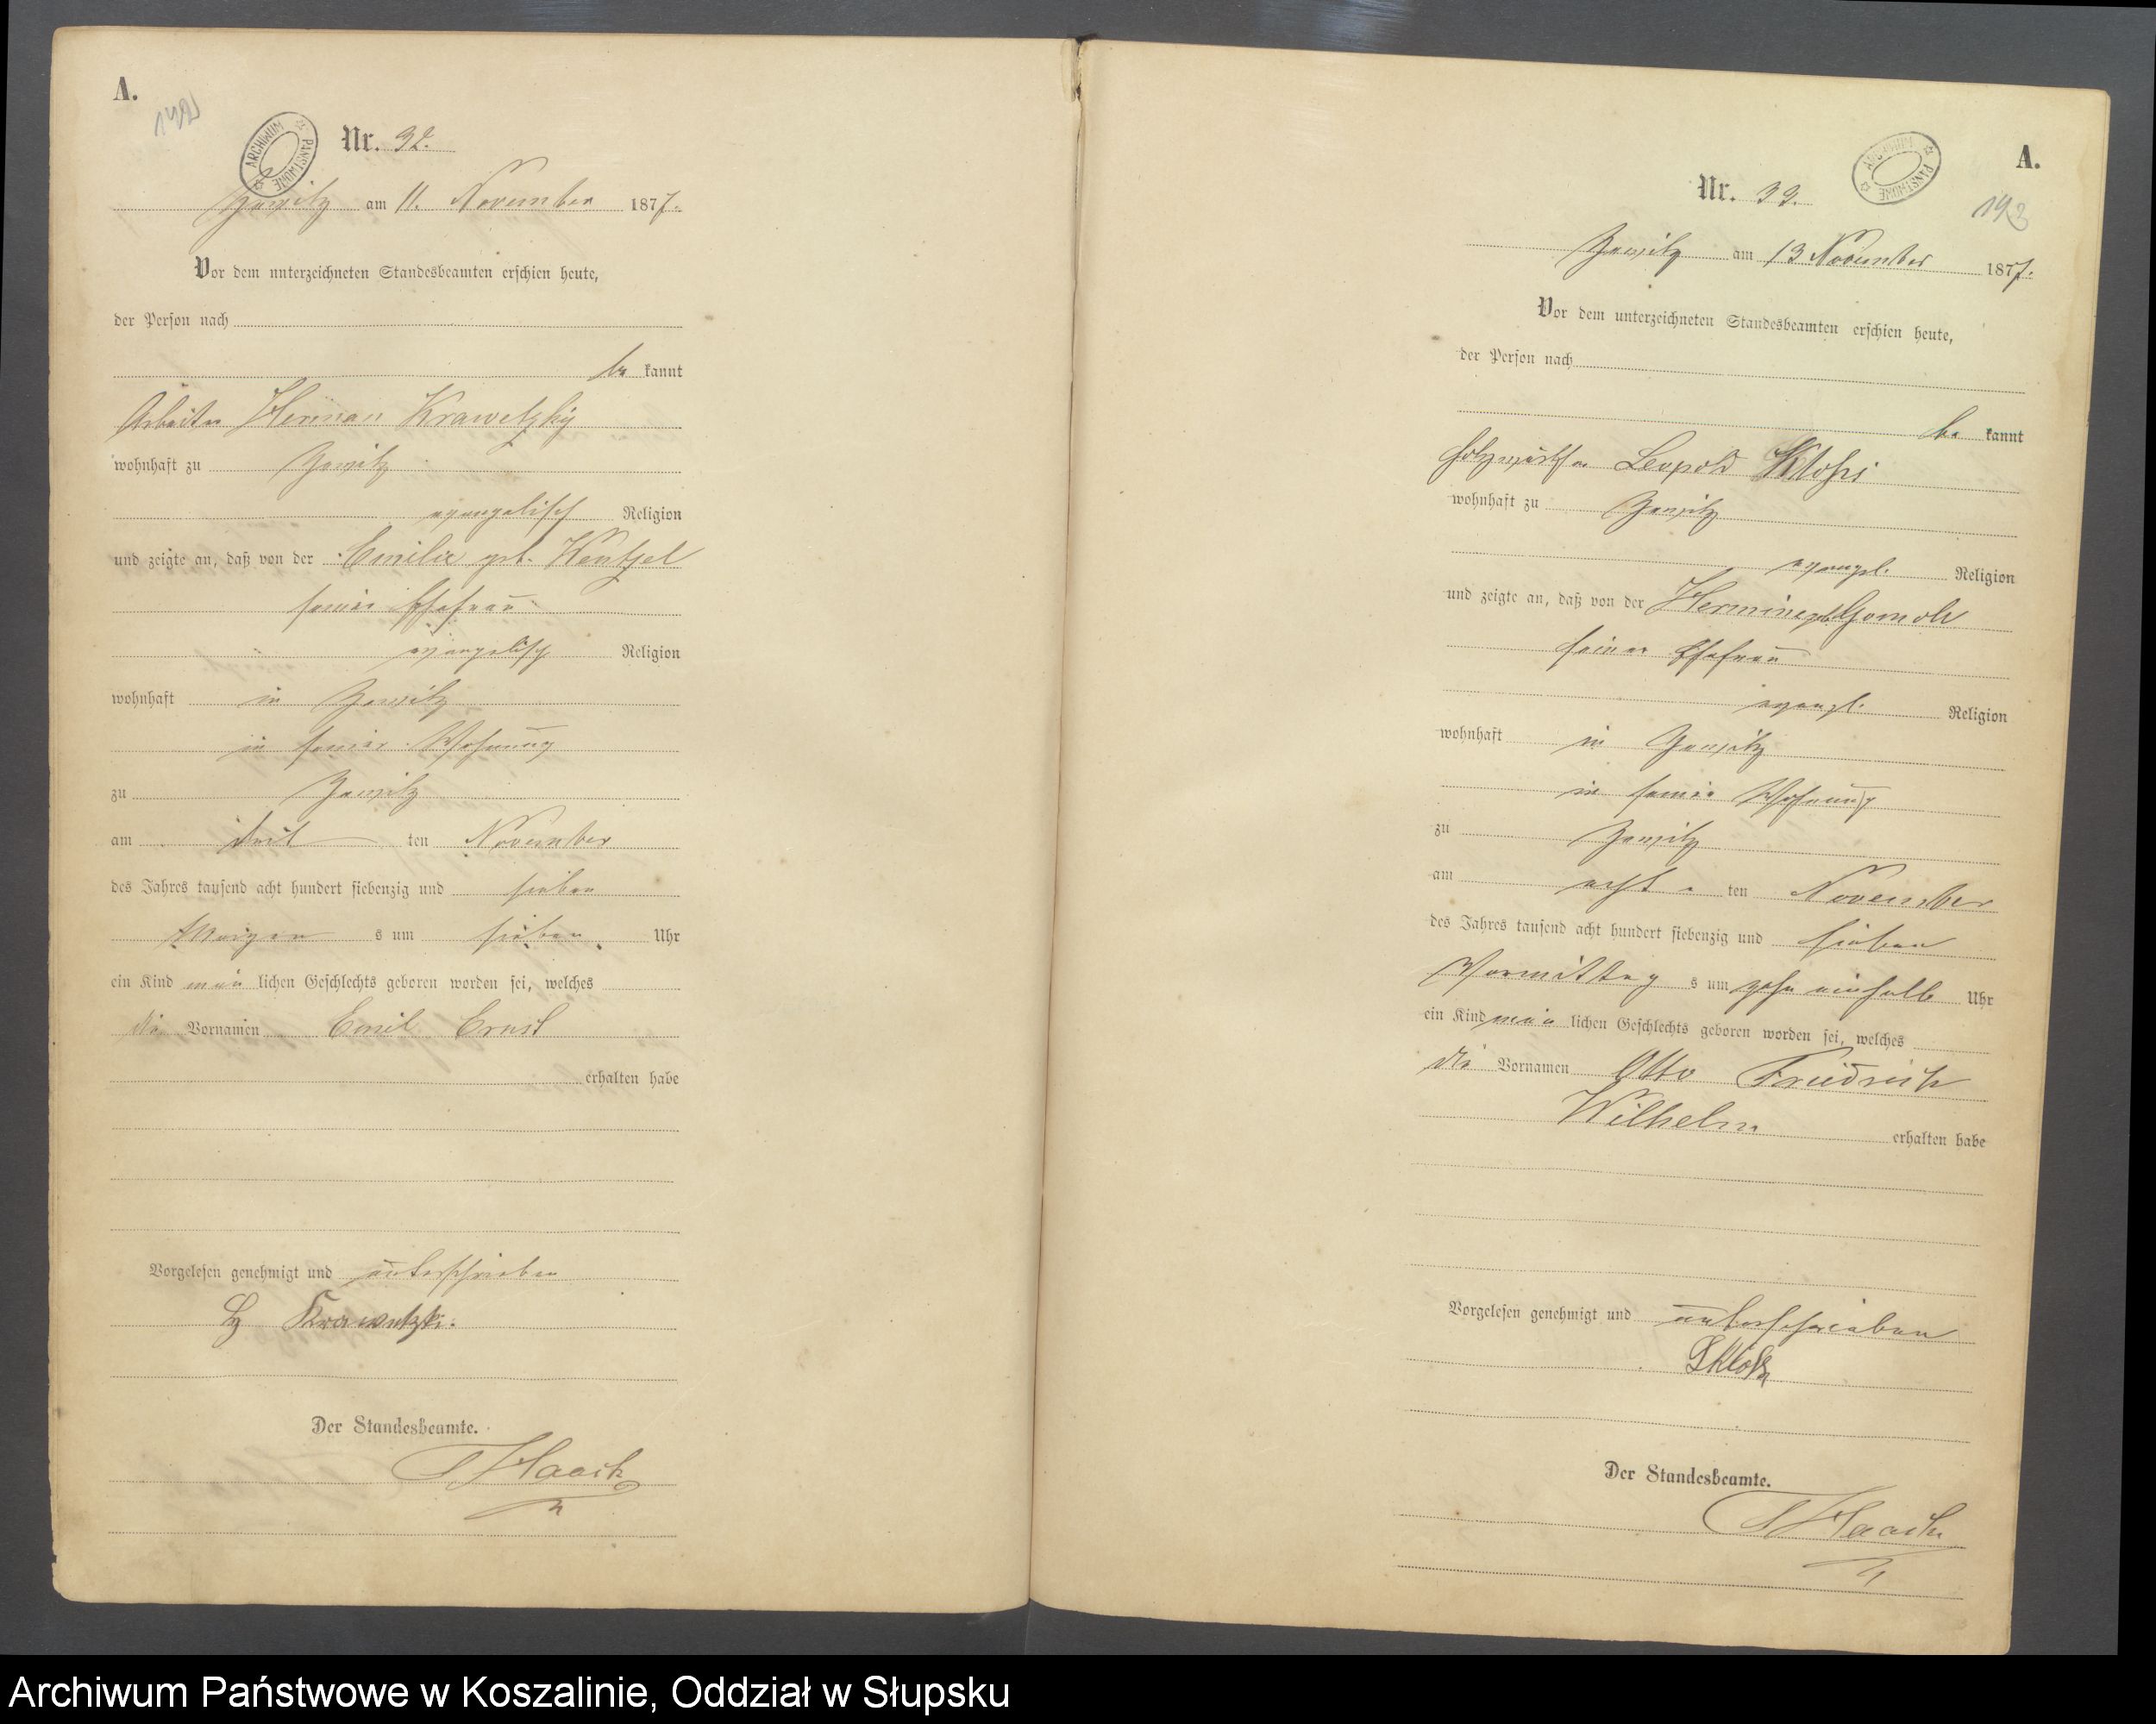 A.
Nr. 32.
ARCHIWUM PAŃSTWOWE
am 11. November 1877.
Vor dem unterzeichneten Standesbeamten erschien heute,
der Person nach
be kannt
Arbeiter Herman Krawetzky
wohnhaft zu
evangelisch Religion
und zeigte an, daß von der Emilie geb. Wentzel
seiner Ehefrau
evangelisch Religion
wohnhaft in
in seiner Wohnung
zu
am drit ten November
des Jahres tausend acht hundert siebenzig und sieben
Morgen s um sieben Uhr
ein Kind män lichen Geschlechts geboren worden sei, welches
die Vornamen Emil Ernst
erhalten habe
Vorgelesen genehmigt und unterschrieben
Krawetzki.
Der Standesbeamte.
Haack
A.
Nr. 33.
ARCHIWUM PAŃSTWOWE
193
am 13 November 1877.
Vor dem unterzeichneten Standesbeamten erschien heute,
der Person nach
be kannt
Leopold
wohnhaft zu
evangel. Religion
und zeigte an, daß von der Hermine geb.
seiner Ehefrau
evangl. Religion
wohnhaft in
in seiner Wohnung
zu
am acht ten November
des Jahres tausend acht hundert siebenzig und sieben
Vormittag s um zehn einhalb Uhr
ein Kind män lichen Geschlechts geboren worden sei, welches
die Vornamen Otto Friedrich
Wilhelm erhalten habe
Vorgelesen genehmigt und unterschrieben
Der Standesbeamte.
Haack
Archiwum Państwowe w Koszalinie, Oddział w Słupsku